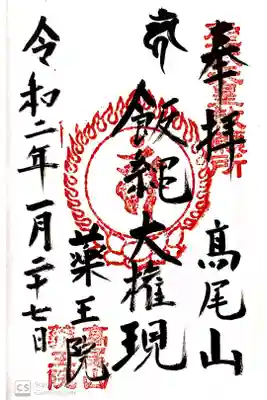 奉拝
高尾山
飯縄大権現
薬王院
令和二年一月二十七日
CS